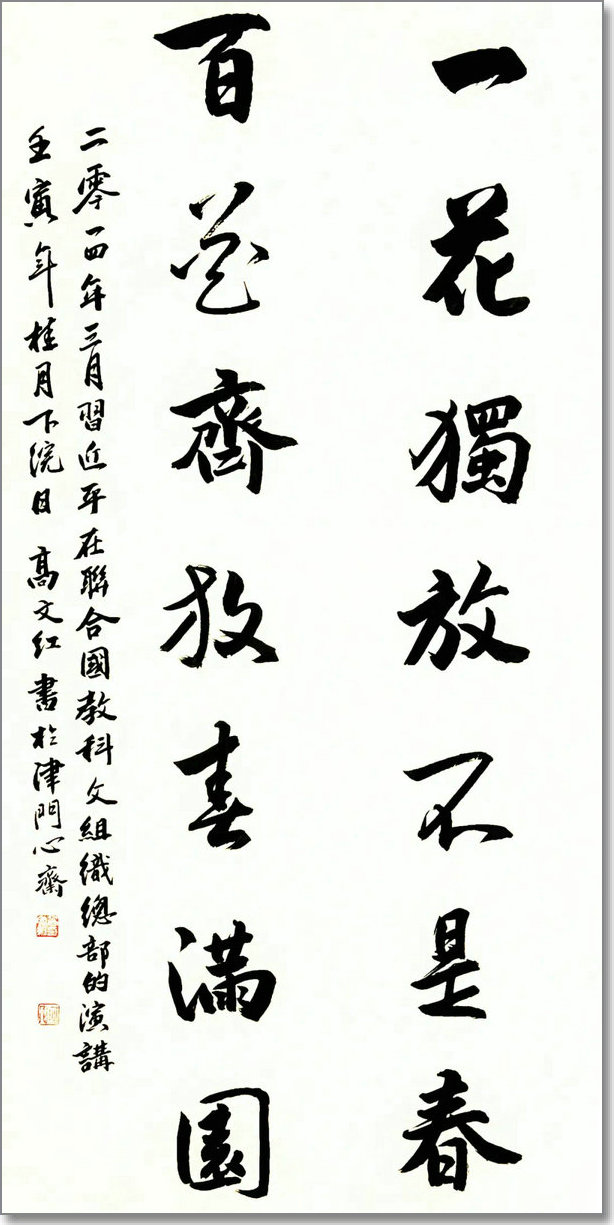 一花獨放不是春
百花齊放春滿園
二零一四年三月習近平在聯合國教科文組織總部的演講
壬寅年桂月下浣日 高文紅書於津門心齋